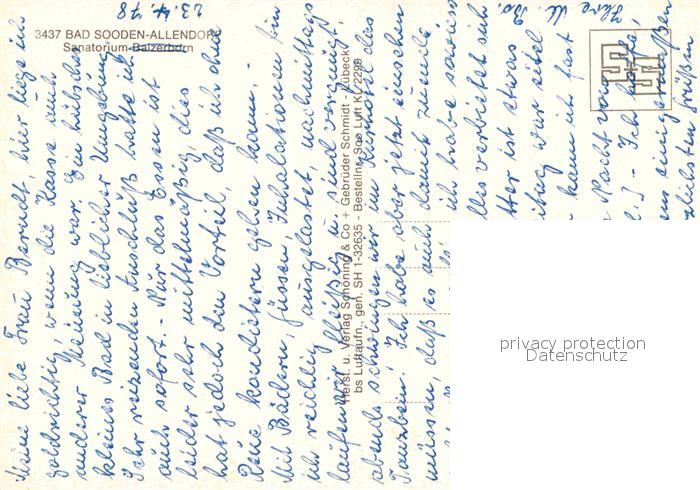 3437 BAD SOODEN-ALLENDORF
Sanatorium Balzerborn
23.4.78
Meine liebe Frau Berndt, hier liege ich
goldrichtig, wenn die Kasse auch
anderer Meinung war. Ein hübsches
kleines Bad in lieblicher Umgebung
Sehr reizenden Anschluß hatte ich
auch sofort. - Nur das Essen ist
leider sehr mittelmäßig, dies
hat jedoch den Vorteil, daß ich ohne
Reue konditern gehen kann. -
Mit Bädern, Güssen, Inhalationen bin
ich reichlich ausgelastet, nachmittags
laufen wir fleißig u. sind vergnügt.
abends schwingen wir im Kurhotel das
Tanzbein! Ich habe aber jetzt einsehen
müssen, daß es auch damit zuende
ich habe soviel
alles verbietet sich
etter ist etwas
kann ich fast
Nacht
Ich hoffe,
ens einigermaßen
herzlichsten Grüßen
Ihre
Herst. u. Verlag Schöning & Co + Gebrüder Schmidt - Lübeck
bs Luftaufn., gen. SH 1-32635 - Bestellnr. Soo Luft KL 2299
privacy protection
Datenschutz